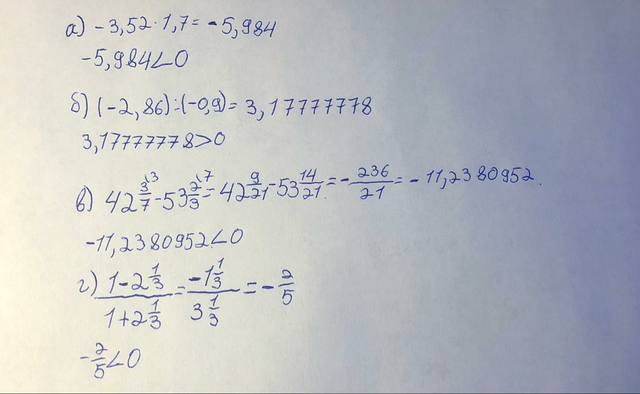 а) -3,52·1,7= -5,984
-5,984<0
б) (-2,86):(-0,9)= 3,17777778
3,17777778>0
в) 42 3/7 \3 - 53 2/3 \7 = 42 9/21 - 53 14/21 = - 236/21 = - 11,2380952.
-11,2380952<0
г) (1-2 1/3)/(1+2 1/3) = (-1 1/3)/(3 1/3) = - 2/5
- 2/5 <0